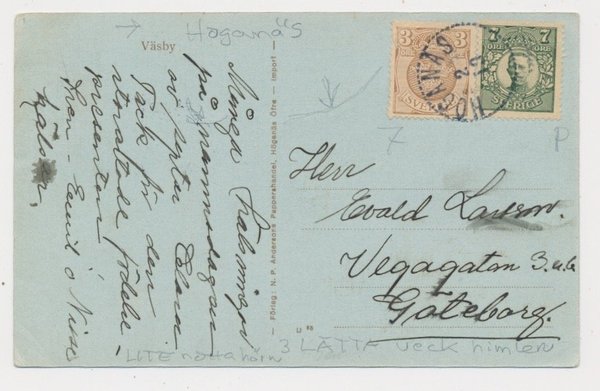 Höganäs
Väsby
Många hälsningar
på namnsdagen
av
Tack för den
presenten
Hälsn.
Förlag: N. P. Anderssons Pappershandel, Höganäs Öfre — Import —
3
3
SVERIGE
7
7
ÖRE
ÖRE
SVERIGE
HÖGANÄS
7
P
Herr
Evald Larsson.
Vegagatan 3.
Göteborg.
LITE nötta hörn
3 LÄTTA veck himlen